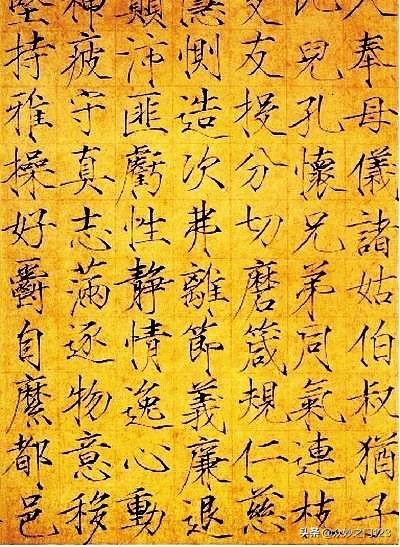 入奉母儀諸姑伯叔猶子
比兒孔懷兄弟同氣連枝
交友投分切磨箴規仁慈
隱惻造次弗離節義廉退
顛沛匪虧性靜情逸心動
神疲守真志滿逐物意移
堅持雅操好爵自縻都邑
头条 @众妙之门923